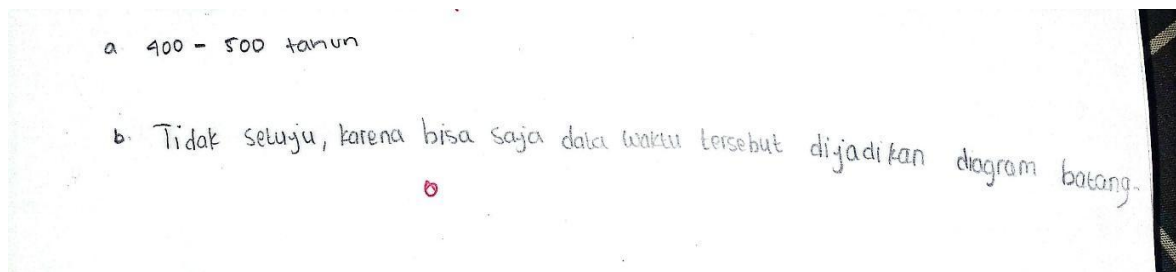 a 400 - 500 tahun
b. Tidak setuju, karena bisa saja data waktu tersebut dijadikan diagram batang.
0